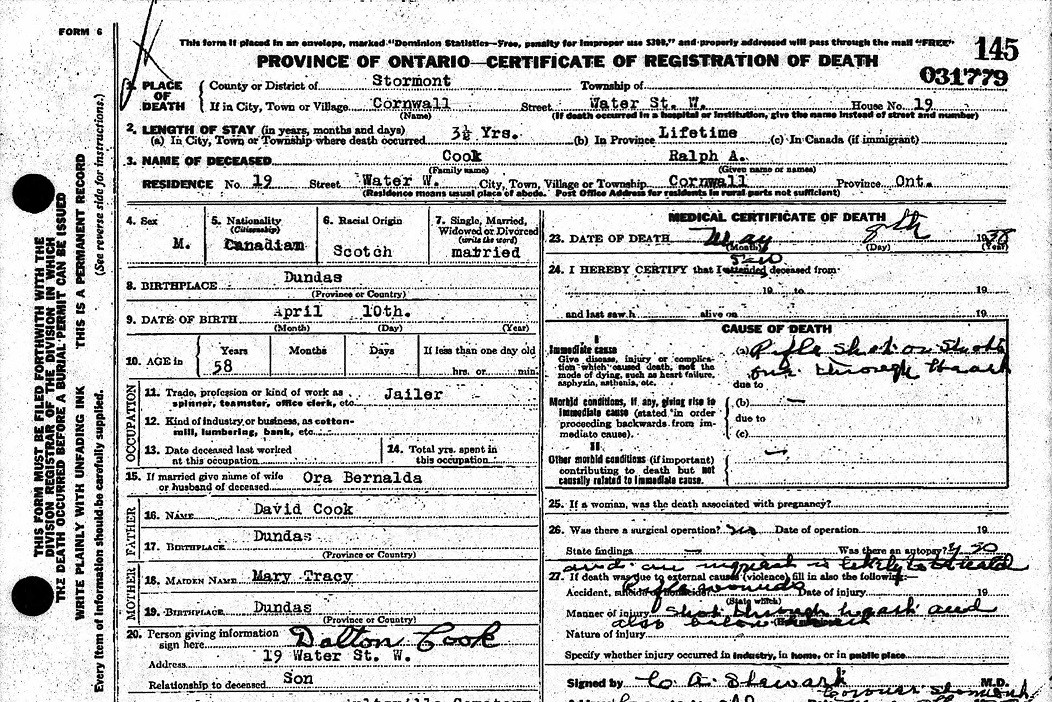 FORM 6
This form if placed in an envelope, marked "Dominion Statistics—Free, penalty for improper use $300," and properly addressed will pass through the mail "FREE"
145
PROVINCE OF ONTARIO—CERTIFICATE OF REGISTRATION OF DEATH
031779
1. PLACE OF DEATH
County or District of Stormont Township of
If in City, Town or Village Cornwall Street Water St. W. House No. 19
(Name) (If death occurred in a hospital or institution, give the name instead of street and number)
2. LENGTH OF STAY (in years, months and days)
(a) In City, Town or Township where death occurred 3½ Yrs. (b) In Province Lifetime (c) In Canada (if immigrant)
3. NAME OF DECEASED Cook Ralph A.
(Family name) (Given name or names)
RESIDENCE No. 19 Street Water W. City, Town, Village or Township Cornwall Province Ont.
(Residence means usual place of abode. Post Office Address for residents in rural parts not sufficient)
4. Sex
M.
5. Nationality
(Citizenship)
Canadian
6. Racial Origin
Scotch
7. Single, Married,
Widowed or Divorced
(write the word)
married
8. BIRTHPLACE Dundas
(Province or Country)
9. DATE OF BIRTH April 10th.
(Month) (Day) (Year)
10. AGE in
Years Months Days If less than one day old
58 hrs. or min.
OCCUPATION
11. Trade, profession or kind of work as Jailer
spinner, teamster, office clerk, etc.
12. Kind of industry or business, as cotton-
mill, lumbering, bank, etc.
13. Date deceased last worked
at this occupation
14. Total yrs. spent in
this occupation
15. If married give name of wife Ora Bernalda
or husband of deceased
FATHER
16. NAME David Cook
17. BIRTHPLACE Dundas
(Province or Country)
MOTHER
18. MAIDEN NAME Mary Tracy
19. BIRTHPLACE Dundas
(Province or Country)
20. Person giving information
sign here Dalton Cook
Address 19 Water St. W.
Relationship to deceased Son
Cemetery
MEDICAL CERTIFICATE OF DEATH
23. DATE OF DEATH May 8th 1938
(Month) (Day) (Year)
24. I HEREBY CERTIFY that I attended deceased from
19 to 19
and last saw h alive on 19
CAUSE OF DEATH
I
Immediate cause
Give disease, injury or complica-
tion which caused death, not the
mode of dying, such as heart failure,
asphyxia, asthenia, etc.
(a) Rifle shot or shots
one through heart
due to
Morbid conditions, if any, giving rise to
immediate cause (stated in order
proceeding backwards from im-
mediate cause).
(b) —
due to
(c)
II
Other morbid conditions (if important)
contributing to death but not
causally related to immediate cause.
25. If a woman, was the death associated with pregnancy?
26. Was there a surgical operation? no Date of operation 19
State findings — Was there an autopsy? yes
and an inquest is likely to be held
27. If death was due to external causes (violence) fill in also the following:—
Accident, suicide or homicide Date of injury 19
(State which)
Manner of injury shot through heart and
also below
Nature of injury
Specify whether injury occurred in industry, in home, or in public place
Signed by C. A. Stewart M.D.
Coroner
THIS FORM MUST BE FILED FORTHWITH WITH THE
DIVISION REGISTRAR OF THE DIVISION IN WHICH
THE DEATH OCCURRED BEFORE A BURIAL PERMIT CAN BE ISSUED
WRITE PLAINLY WITH UNFADING INK THIS IS A PERMANENT RECORD
Every item of information should be carefully supplied. (See reverse side for instructions.)